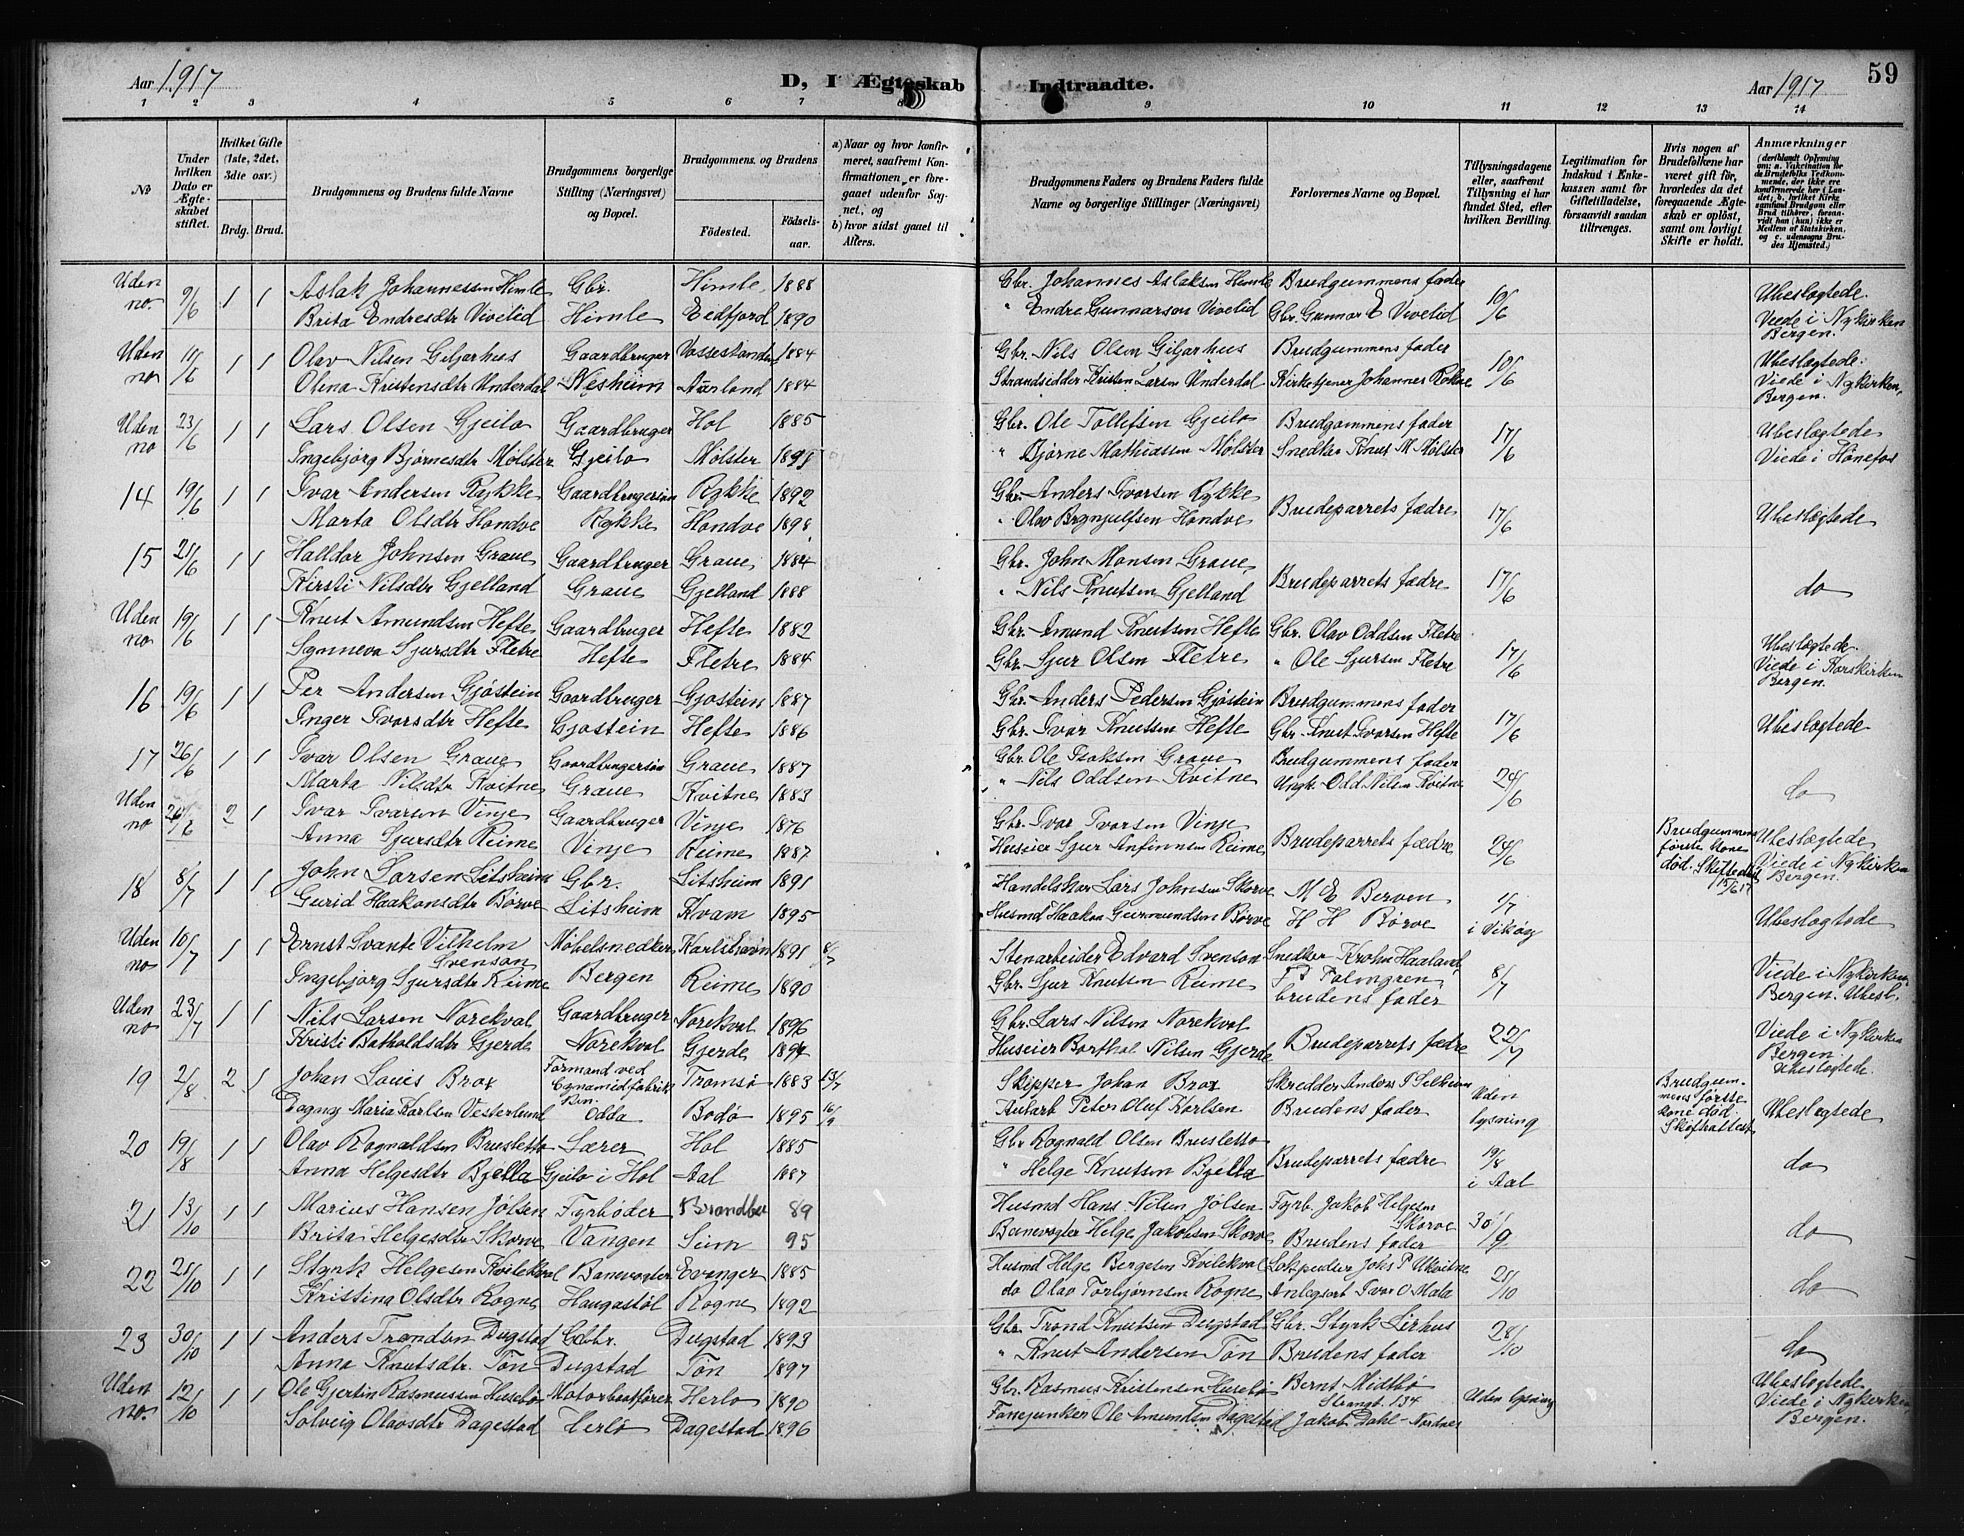 Aar 1917
D, I Ægteskab Indtraadte.
Aar 1917
59
1 2 3 4 5 6 7 8 9 10 11 12 13 14
No
Under hvilken Dato er Ægteskabet stiftet.
Hvilket Gifte (1ste, 2det, 3dte osv.)
Brdg. Brud.
Brudgommens og Brudens fulde Navne
Brudgommens borgerlige Stilling (Næringsvei) og Bopæl.
Brudgommens og Brudens
Fødested. Fødselsaar.
a) Naar og hvor konfirmeret, saafremt Konfirmationen er foregaaet udenfor Sognet, og
b) hvor sidst gaaet til Alters.
Brudgommens Faders og Brudens Faders fulde Navne og borgerlige Stillinger (Næringsvei)
Forlovernes Navne og Bopæl.
Tillysningsdagene eller, saafremt Tillysning ei har fundet Sted, efter hvilken Bevilling.
Legitimation for Indskud i Enkekassen samt for Giftetilladelse, forsaavidt saadan tiltrænges.
Hvis nogen af Brudefolkene har været gift før, hvorledes da det foregaaende Ægteskab er opløst, samt om lovligt Skifte er holdt.
Anmærkninger
(deriblandt Oplysning om: a. Vakcination for de Brudefolks Vedkommende, der ikke ere konfirmerede her i Landet; b. hvilket Kirkesamfund Brudgom eller Brud tilhører, forsaavidt han (hun) ikke er Medlem af Statskirken, og c. udensogns Brudes Hjemsted.)
Uden no. 9/6 1 1 Aslak Johannessen Himle Gbr. Himle 1888 Gbr. Johannes Aslaksen Himle Brudgummens fader 10/6 Ubeslægtede.
Brita Endresdtr Vivelid Himle Eidfjord 1890 " Endre Gunnarson Vivelid Gbr. Gunnar E Vivelid Viede i Nykirken Bergen.
Uden no 11/6 1 1 Olav Nilsen Giljarhus Gaardbruger Vossestranden 1884 Gbr. Nils Olsen Giljarhus Brudgummens fader 10/6 Ubeslægtede.
Olina Kristensdtr Underdal Nesheim Aurland 1884 Strandsidder Kristen Larsen Underdal Kirketjener Johannes Rokne Viede i Nykirken, Bergen.
Uden no 23/6 1 1 Lars Olsen Gjeilo Gaardbruger Hol 1885 Gbr. Ole Tollefsen Gjeilo Brudgommens fader 17/6 Ubeslægtede
Ingebjørg Bjørnesdtr Mølster Gjeilo Mølster " Bjørne Mathiasen Mølster Snedker Knut M Mølster Viede i Hønefos
14 19/6 1 1 Ivar Andersen Rykke Gaardbrugersøn Rykke 1892 Gbr. Anders Ivarsen Rykke Brudeparrets fædre 17/6 Ubeslægtede
Marta Olsdtr Hondve Rykke Hondve 1898 " Olav Brynjulfsen Hondve
15 21/6 1 1 Halldor Johnsen Graue Gaardbruger Graue 1884 Gbr. John Monsen Graue Brudeparrets fædre 17/6 do
Kirsti Nilsdtr Gjelland Graue Gjelland 1888 " Nils Knutsen Gjelland
Uden no 19/6 1 1 Knut Amundsen Hefte Gaardbruger Hefte 1882 Gbr. Amund Knutsen Hefte Gbr. Olav Oddsen Fletre 17/6 Ubeslægtede.
Synneva Sjursdtr Fletre Hefte Fletre 1884 Gbr. Sjur Olsen Fletre " Ole Sjursen Fletre Viede i Korskirken Bergen.
16 19/6 1 1 Per Andersen Gjøstein Gaardbruger Gjøstein 1887 Gbr. Anders Pedersen Gjøstein Brudgummens fader 17/6 Ubeslægtede
Inger Ivarsdtr Hefte Gjøstein Hefte 1886 Gbr. Ivar Knutsen Hefte Gbr. Knut Ivarsen Hefte
17 26/6 1 1 Ivar Olsen Graue Gaardbrugersøn Graue 1887 Gbr. Ole Isaksen Graue Brudgummens fader 24/6 do
Marta Nilsdtr Kvitne Graue Kvitne 1883 " Nils Oddsen Kvitne Ungk. Odd Nilsen Kvitne
Uden no 26/6 2 1 Ivar Ivarsen Vinje Gaardbruger Vinje 1876 Gbr. Ivar Ivarsen Vinje Brudeparrets fædre 24/6 Brudgummens første kone død. Skifte 15/6 17 Ubeslægtede
Anna Sjursdtr Reime Vinje Reime 1887 Huseier Sjur Anfinnsen Reime Viede i Nykirken Bergen.
18 8/7 1 1 John Larsen Litsheim Gbr. Litsheim 1891 Handelskar Lars Johnsen Skorve M E Berven 1/7 Ubeslægtede
Gurid Haakonsdtr Børve Litsheim Kvam 1895 Husmd Haakon Guomundsen Børve H H Børve i Vikøy
Uden no 10/7 1 1 Ernst Svante Vilhelm Svenson Møbelsnedker Karlshavn 1891 8/7 Stenarbeider Edvard Svenson Snedker Krohn Haaland 8/7 Viede i Nykirken
Ingebjørg Sjursdtr Reime Bergen Reime 1890 Gbr. Sjur Knutsen Reime F Palmgren brudens fader Bergen. Ubesl.
Uden no 23/7 1 1 Nils Larsen Norekval Gaardbruger Norekval 1896 Gbr. Lars Nilsen Norekval Brudeparrets fædre 22/7 Viede i Nykirken Bergen.
Kristi Batholdsdtr Gjerde Norekval Gjerde Huseier Barthol Nilsen Gjerde Ubeslægtede.
19 2/8 2 1 Johan Louis Brox Formand ved Cynamidfabriken Tromsø 1883 23/7 Skipper Johan Brox Skredder Anders P Selheim Uden lysning Brudgummens første kone død. Skifteattest Ubeslægtede
Dagny Maria Karlsen Vesterlund Odda Bodø 1895 16/9 Autart Peter Oluf Karlsen Brudens fader
20 19/8 1 1 Olav Rognaldsen Brusletto Lærer Hol 1885 Gbr Rognald Olsen Brusletto Brudeparrets fædre 19/8 i Aal do
Anna Helgesdtr Bjella Gjeilo i Hol Aal 1887 " Helge Knutsen Bjella
21 13/10 1 1 Marius Hansen Jølsen Fyrbøder Brandbu 89 Husmd Hans Nilsen Jølsen Fyrb. Jakob Helgesen Skorve 30/9 do
Brita Helgesdtr Skorve Vangen Seim 95 Banevogter Helge Jakobsen Skorve Brudens fader
22 21/10 1 1 Styrk Helgesen Kvilekval Banevogter Evanger 1885 Husmd Helge Bergesen Kvilekval Lokpudser Johs P Ukvitne 21/10 do
Kristina Olsdtr Rogne Haugastøl Rogne 1892 do Olav Torbjørnsen Rogne Anlegsarb Ivar O Mala
23 30/10 1 1 Anders Trondsen Dugstad Gbr. Dugstad 1893 Gbr. Trond Knutsen Dugstad Gbr. Styrk Lirhus 28/10 do
Anna Knutsdtr. Tøn Dugstad Tøn 1897 " Knut Andersen Tøn Brudens fader
Uden no. 12/10 1 1 Ole Gjertin Rasmussen Husebø Motorbaatfører Herlø 1890 Gbr. Rasmus Kristensen Husebø Bernt Midthø Strangt. 134 Uden lysning Ubeslægtede
Solveig Olavsdtr Dagestad Herlø Dagestad 1896 Fanejunker Ole Amundsen Dagestad Jakob Dahl - Nordnes Viede i Nykirken Bergen.